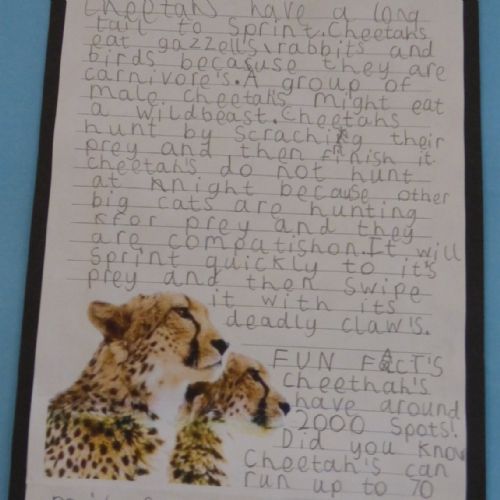 cheetahs have a long
tail to sprint.Cheetahs
eat gazzell's, rabbits and
birds becasuse they are
carnivore's.A group of
male cheetahs might eat
a wildbeast.Cheetahs
hunt by scraching their
prey and then finish it
cheetah's do not hunt
at knight because other
big cats are hunting
for prey and they
are compatishon.It will
sprint quickly to it's
prey and then swipe
it with its
deadly claw's.
FUN FACT'S
cheethah's
have around
2000 spots!
Did you know
Cheetah's can
run up to 70